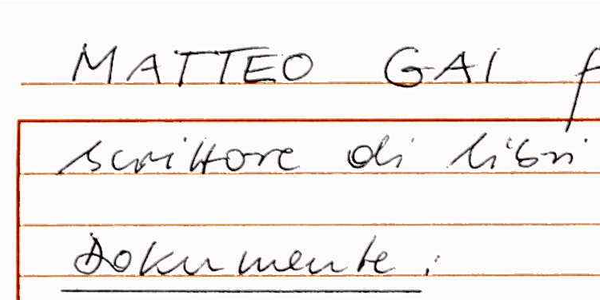 MATTEO GAI f
scrittore di libri
Dokumente: